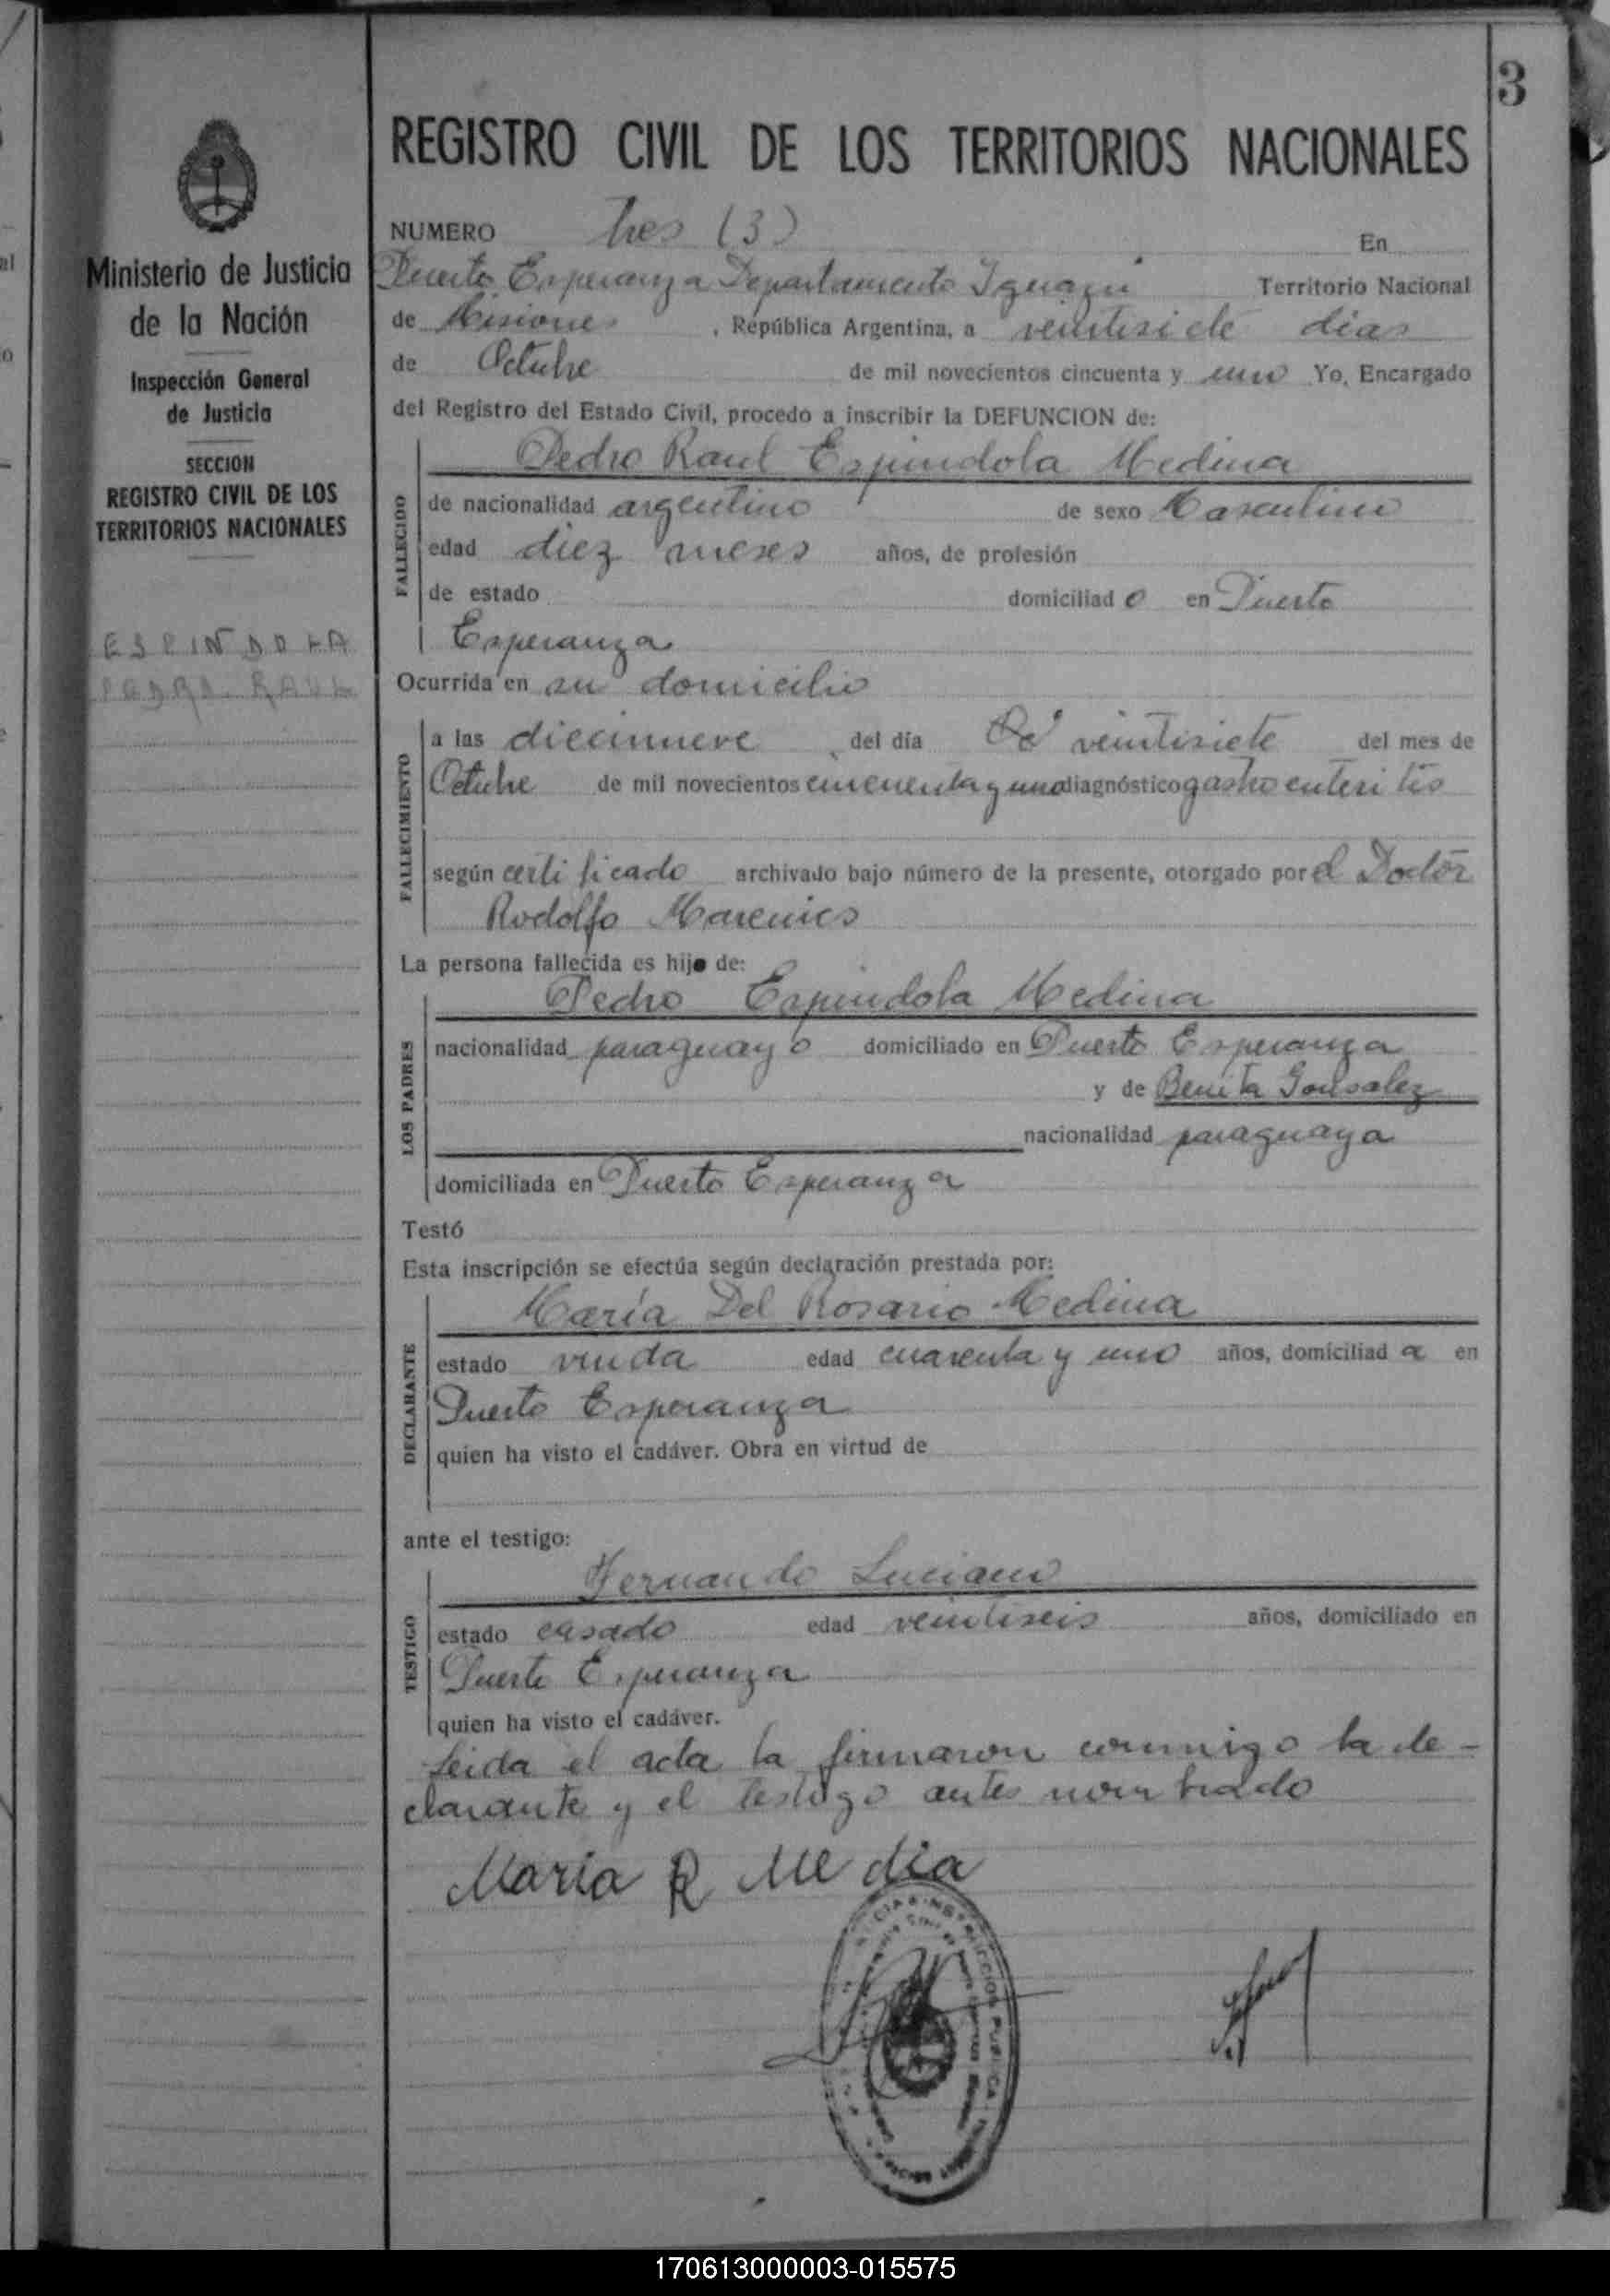 3
REGISTRO CIVIL DE LOS TERRITORIOS NACIONALES
Ministerio de Justicia
de la Nación
Inspección General
de Justicia
SECCION
REGISTRO CIVIL DE LOS
TERRITORIOS NACIONALES
ESPINDOLA
PEDRO RAUL
NUMERO tres (3) En
Puerto Esperanza Departamento Iguazú Territorio Nacional
de Misiones, República Argentina, a veintisiete dias
de Octubre de mil novecientos cincuenta y uno Yo, Encargado
del Registro del Estado Civil, procedo a inscribir la DEFUNCION de:
Pedro Raul Espindola Medina
FALLECIDO
de nacionalidad argentino de sexo Masculino
edad diez meses años, de profesión
de estado domiciliado en Puerto
Esperanza
Ocurrida en su domicilio
FALLECIMIENTO
a las diecinueve del día veintisiete del mes de
Octubre de mil novecientos cincuenta y uno diagnóstico gastro enteritis
según certificado archivado bajo número de la presente, otorgado por el Doctor
Rodolfo Marenics
La persona fallecida es hijo de:
Pedro Espindola Medina
LOS PADRES
nacionalidad paraguayo domiciliado en Puerto Esperanza
y de Benita Gonsalez
nacionalidad paraguaya
domiciliada en Puerto Esperanza
Testó
Esta inscripción se efectúa según declaración prestada por:
María Del Rosario Medina
DECLARANTE
estado viuda edad cuarenta y uno años, domiciliada en
Puerto Esperanza
quien ha visto el cadáver. Obra en virtud de
ante el testigo:
Fernando Luciano
TESTIGO
estado casado edad veintiseis años, domiciliado en
Puerto Esperanza
quien ha visto el cadáver.
Leida el acta la firmaron conmigo la de-
clarante y el testigo antes nombrado
María R Media
170613000003-015575